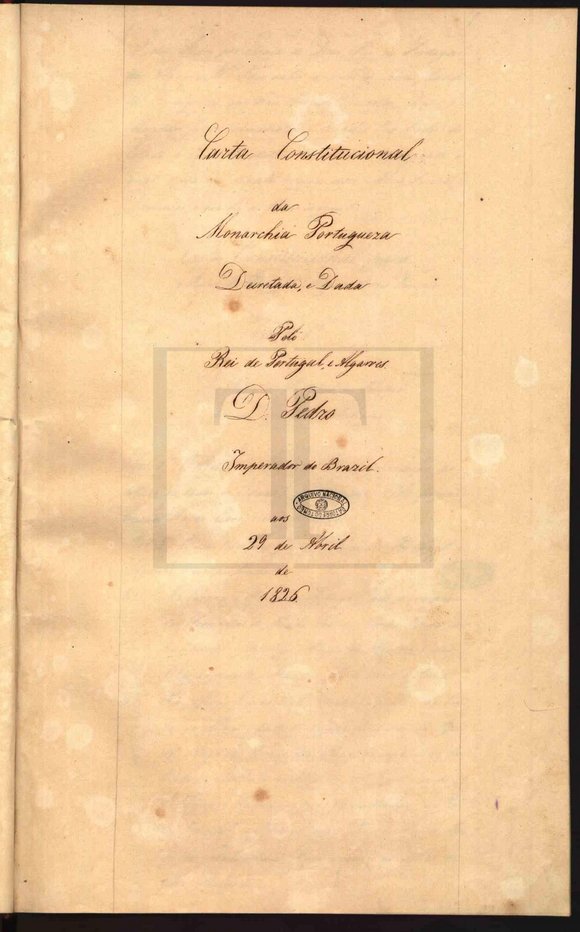 Carta Constitucional
da
Monarchia Portugueza
Decretada, e Dada
Pelo
Rei de Portugal, e Algarves
D. Pedro
Imperador do Brazil.
ARQUIVO NACIONAL
aos
29 de Abril
de
1826